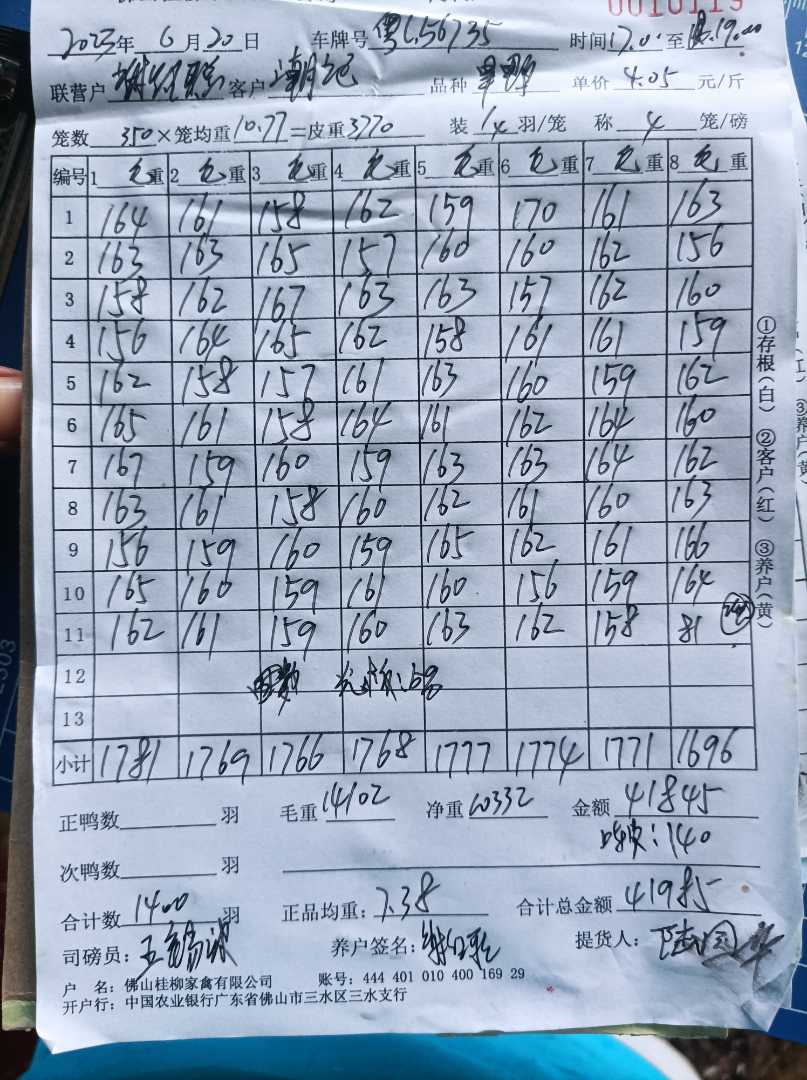 0010119
2023年 6月20日 车牌号 粤L56735 时间17.0 至 19.00
联营户 客户 潮记 品种 单价 4.05 元/斤
笼数 350×笼均重10.77=皮重3770 装 14 羽/笼 称 4 笼/磅
编号 1 毛重 2 毛重 3 毛重 4 毛重 5 毛重 6 毛重 7 毛重 8 毛重
1 164 161 158 162 159 170 161 163
2 163 163 165 157 160 160 162 156
3 158 162 167 163 163 157 162 160
4 156 164 165 162 158 161 161 159
5 162 158 157 161 163 160 159 162
6 165 161 158 164 161 162 164 160
7 167 159 160 159 163 163 164 162
8 163 161 158 160 162 161 160 163
9 156 159 160 159 165 162 161 166
10 165 160 159 161 160 156 159 164
11 162 161 159 160 163 162 158 81
12
13
小计 1781 1769 1766 1768 1777 1774 1771 1696
正鸭数 羽 毛重 14102 净重 10332 金额 41845
:140
次鸭数 羽
合计数 1400 羽 正品均重: 7.38 合计总金额 41985
司磅员: 养户签名: 提货人:
户 名: 佛山桂柳家禽有限公司 账号: 444 401 010 400 169 29
开户行: 中国农业银行广东省佛山市三水区三水支行
①存根(白) ②客户(红) ③养户(黄)